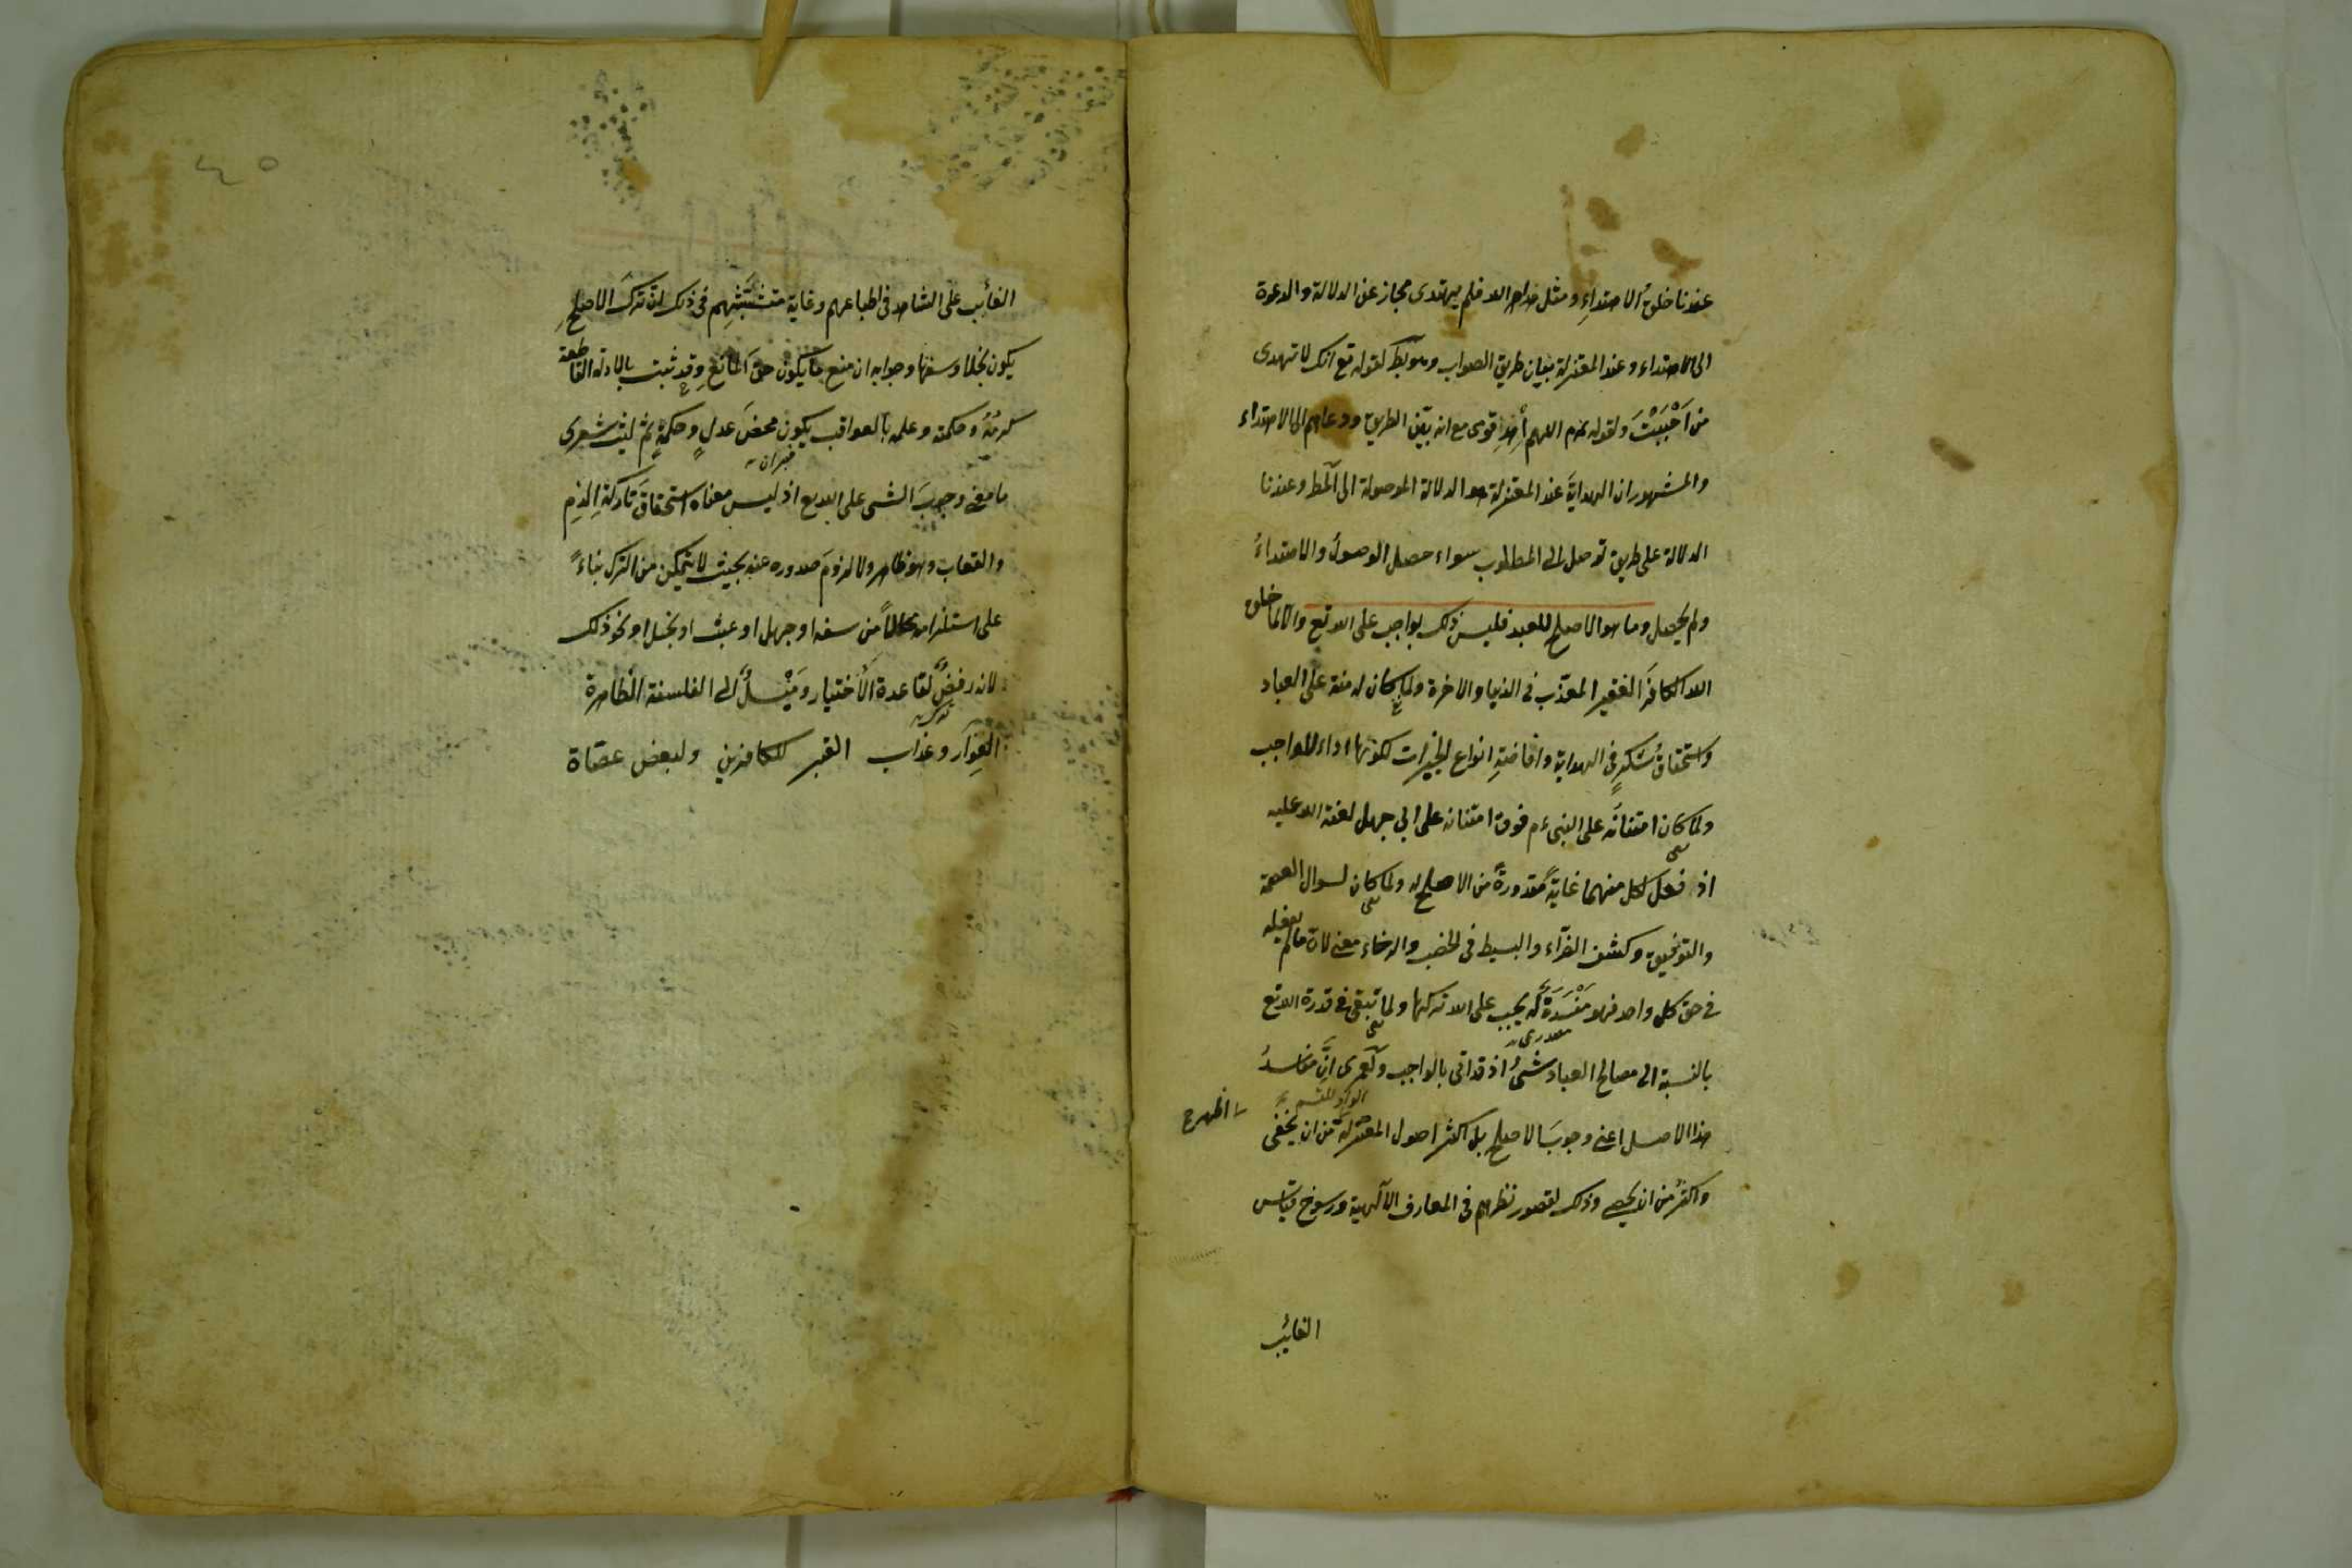 عندنا خلقُ الاهتداءِ ومثل هداه الله فلم يهتدى مجاز عن الدلالة والدعوة
الى الاهتداء وعند المعتزلة بيان طريق الصواب وهو بط لقوله تع انك لا تهدى
من اَحْبَبْتَ ولقوله عم اللهم أهْدِ قومى مع انه بيّن الطريق ودعاهم الى الاهتداء
والمشهور ان الهدايةَ عند المعتزلة هو الدلالة الموصولة الى المط وعندنا
الدلالة على طريق توصل الى المطلوب سواء حصل الوصولُ والاهتداءُ
ولم يحصل وما هو الاصلح للعبد فليس ذلك بواجب على الله تع والا لما خلق
الله الكافرَ الفقير المعذّب فى الدنيا والاخرة ولما كان له منة على العباد
واستحقاقُ شكرٍ فى الهداية وافاضةِ انواع الخيرات لكونها اداء للواجب
ولما كان امتنانَه على النبى ءم فوق امتنانه على ابى جهل لعنة الله عليه
اذ فعل لكل منهما غايةَ مقدورهِ من الاصلح له ولما كان لسوال العصمة
والتوفيق وكشف الضرّاء والبسط فى الخصب والرخاء معنى لان ما لم يفعله
فى حق كل واحد فهو مَفْسَدَةٌ له يجب على الله تركها ولما تبقى فى قدرة الله تع
بالنسبة الى مصالح العباد شىءٌ اذ قد اتى بالواجب ولَعمرى انّ مفاسدُ
الواو للقسم
هذا الاصل اعنى وجوبَ الاصلح بل اكثر اصول المعتزلة من ان يخفى
اظهر
واكثرُ من ان يحصى وذلك لقصور نظرهم فى المعارف الآلهية ورسوخ قياس
الغائب
٤٥
الغائب على الشاهد فى اطباعهم وغاية متشبَّثهِم فى ذلك انّ تركَ الاصلحِ
يكون بخلا وسفها وجوابه ان منع ما يكون حق المانع وقد ثبت بالادلة القاطعة
كرمُهُ وحكمته وعلمه بالعواقب يكون محضَ عدلٍ وحكمةٍ ثم ليت شعرى
ما معنى وجوبَ الشى على الله تع اذ ليس معناه استحقاقَ تاركهِ الذم
والعقاب وهو ظاهر ولا لزومَ صدوره عنه بحيث لا يتمكن من الترك بناءً
على استلزامه محالاً من سفه او جهل او عبث او بخل او نحو ذلك
لانه رفضٌ لقاعدة الاختيار ومَيْلٌ الى الفلسفة الظاهرة
العِوَار وعذاب القبر للكافرين ولبعض عصاة